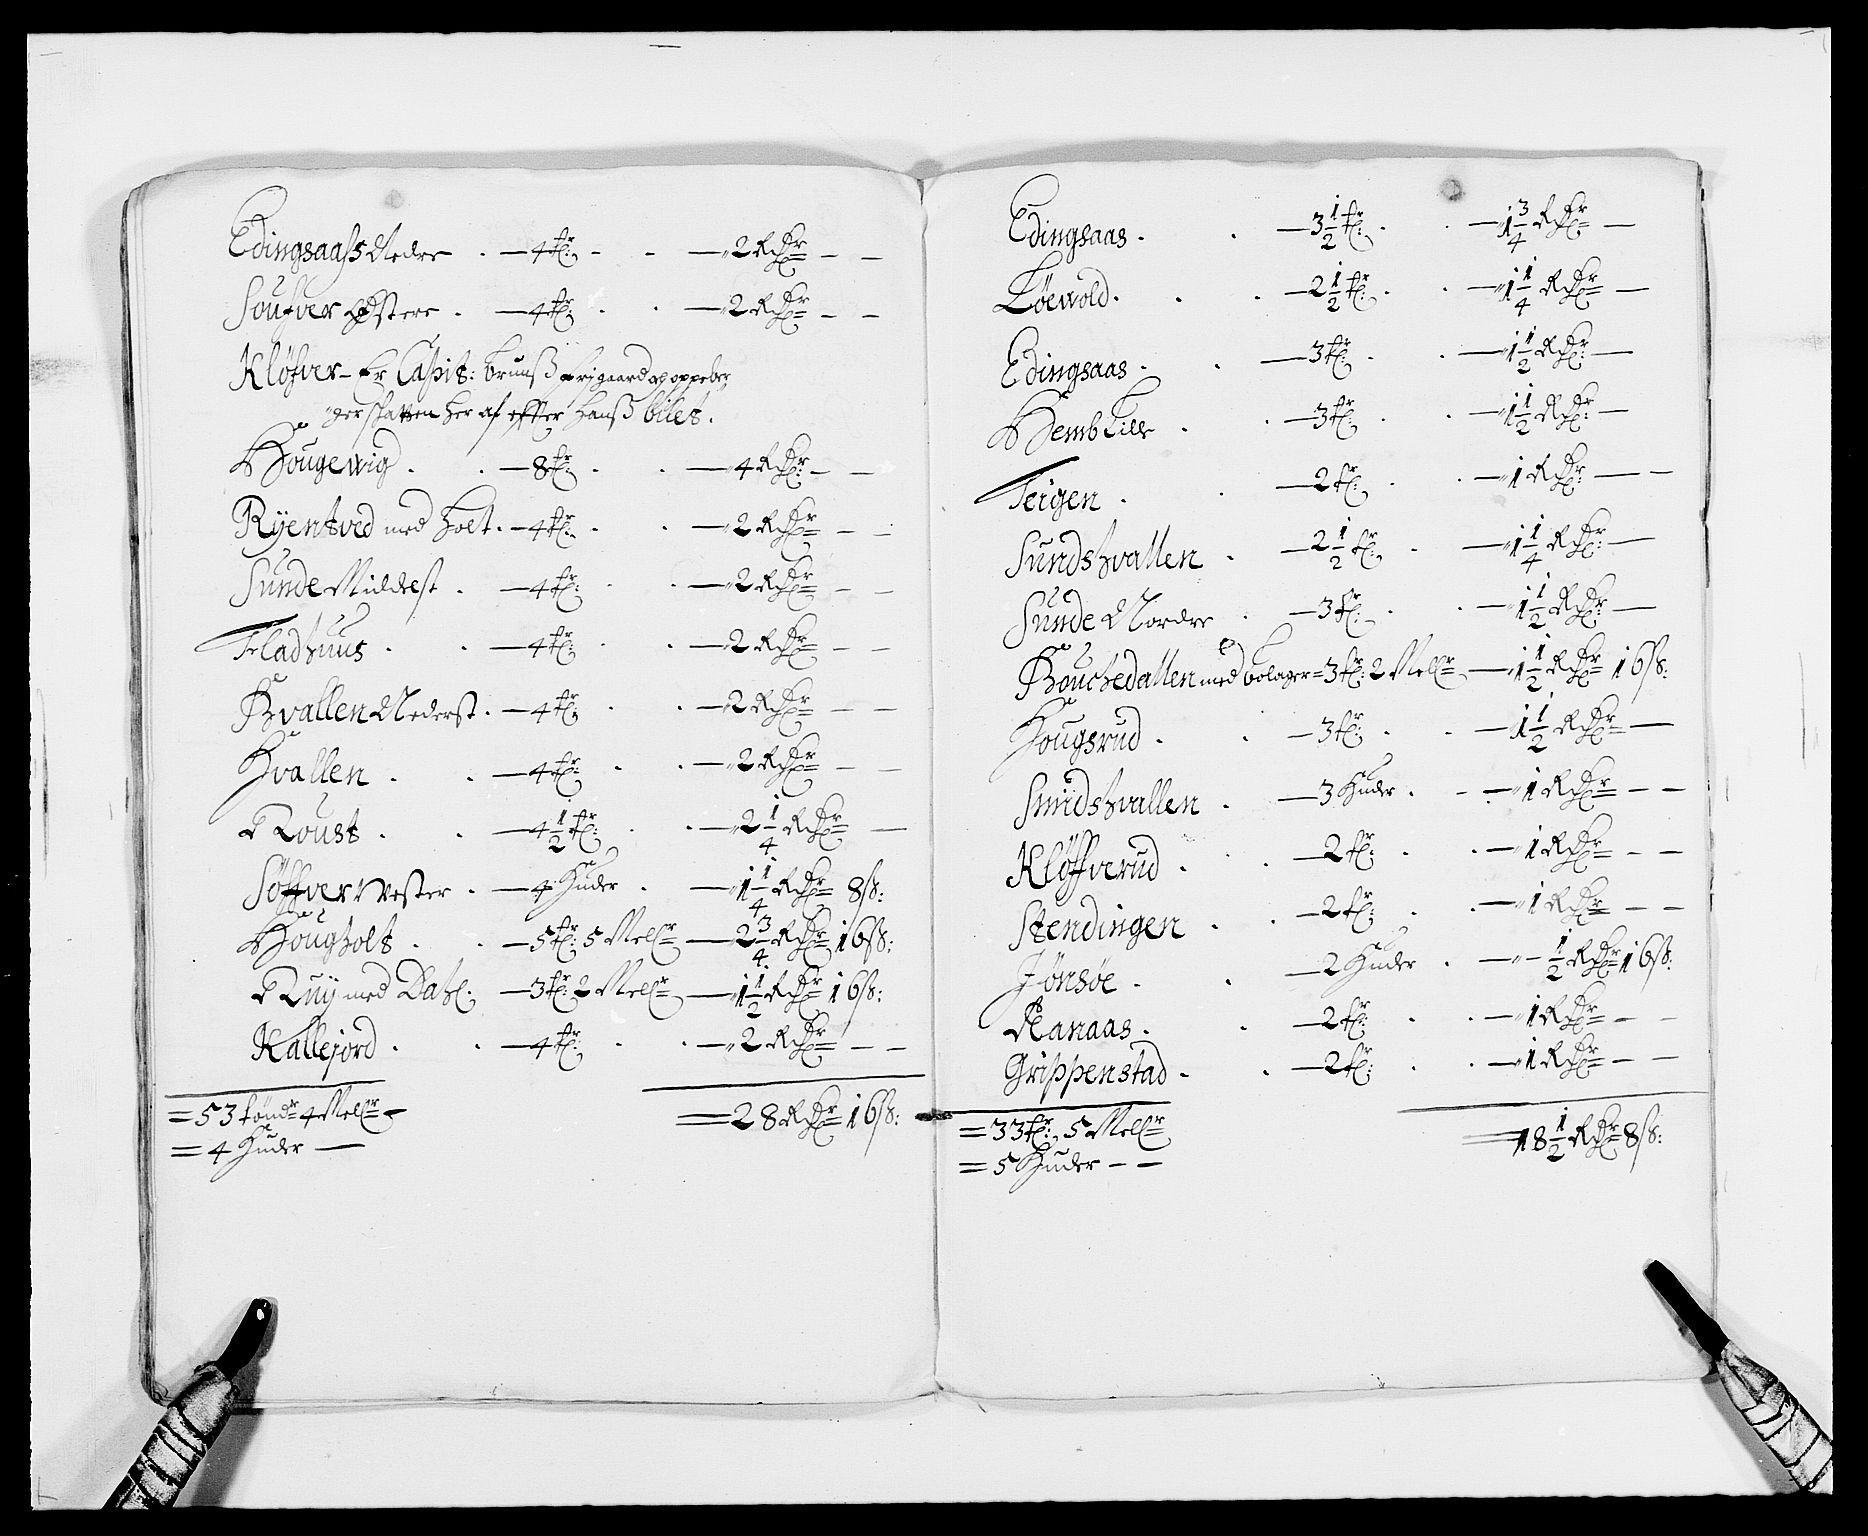 Edingsaass Nedre . — 4 tr: - - — 2 Rdr — —
Soufver Østere . — 4 tr: . . — 2 Rdr — —
Kløfver – Er Capit: Brunß frijgaard og oppeber
ger skatten her af effter hanß bilet.
Hougewig . . — 8 tr: . . — 4 Rdr — —
Ryentved med Holt . — 4 tr: . . — 2 Rdr — —
Sunde Middest . — 4 tr: . . — 2 Rdr — —
Fladhuus . . — 4 tr: . . — 2 Rdr — —
Hvallen Nederst . — 4 tr: . . — 2 Rdr — —
Hvallen . . — 4 tr: . . — 2 Rdr — —
Roust . . — 4 1/2 tr: . . — 2 1/4 Rdr —
Søffver Vester . — 4 Huder . — 1 1/4 Rdr 8 ß:
Hougholt . . — 5 tr: 5 Melr — 2 3/4 Rdr 16 ß:
Ruij med Dahl . — 3 tr: 2 Melr — 1 1/2 Rdr 16 ß:
Kallejord . . — 4 tr: . . — 2 Rdr — —
= 53 tøndr 4 Melr — = 28 Rdr 16 ß:
= 4 Huder —
Edingsaas . . — 3 1/2 tr: . . — 1 3/4 Rdr —
Løevold . . . — 2 1/2 tr: . . — 1 1/4 Rdr —
Edingsaas . . — 3 tr: . . — 1 1/2 Rdr —
Hemb Lille . . — 3 tr: . . — 1 1/2 Rdr —
Teigen . . — 2 tr: . . — 1 Rdr — —
Sundshvallen . — 2 1/2 tr: . — 1 1/4 Rdr —
Sunde Nordre . — 3 tr: . . — 1 1/2 Rdr —
Houchedallen med bolager = 3 tr: 2 Melr — 1 1/2 Rdr 16 ß:
Hougsrud . . — 3 tr: . . — 1 1/2 Rdr —
Smidshvallen . — 3 Huder . - — 1 Rdr — —
Kløffverud . . — 2 tr: . . — 1 Rdr — —
Stendingen . . — 2 tr: . . — 1 Rdr — —
Jønsøe . . — 2 Huder . — 1/2 Rdr 16 ß:
Ranaas . . — 2 tr: . . — 1 Rdr — —
Grippenstad . . — 2 tr: . . — 1 Rdr — —
= 33 tr: 5 Melr = 18 1/2 Rdr 8 ß:
= 5 Huder — —